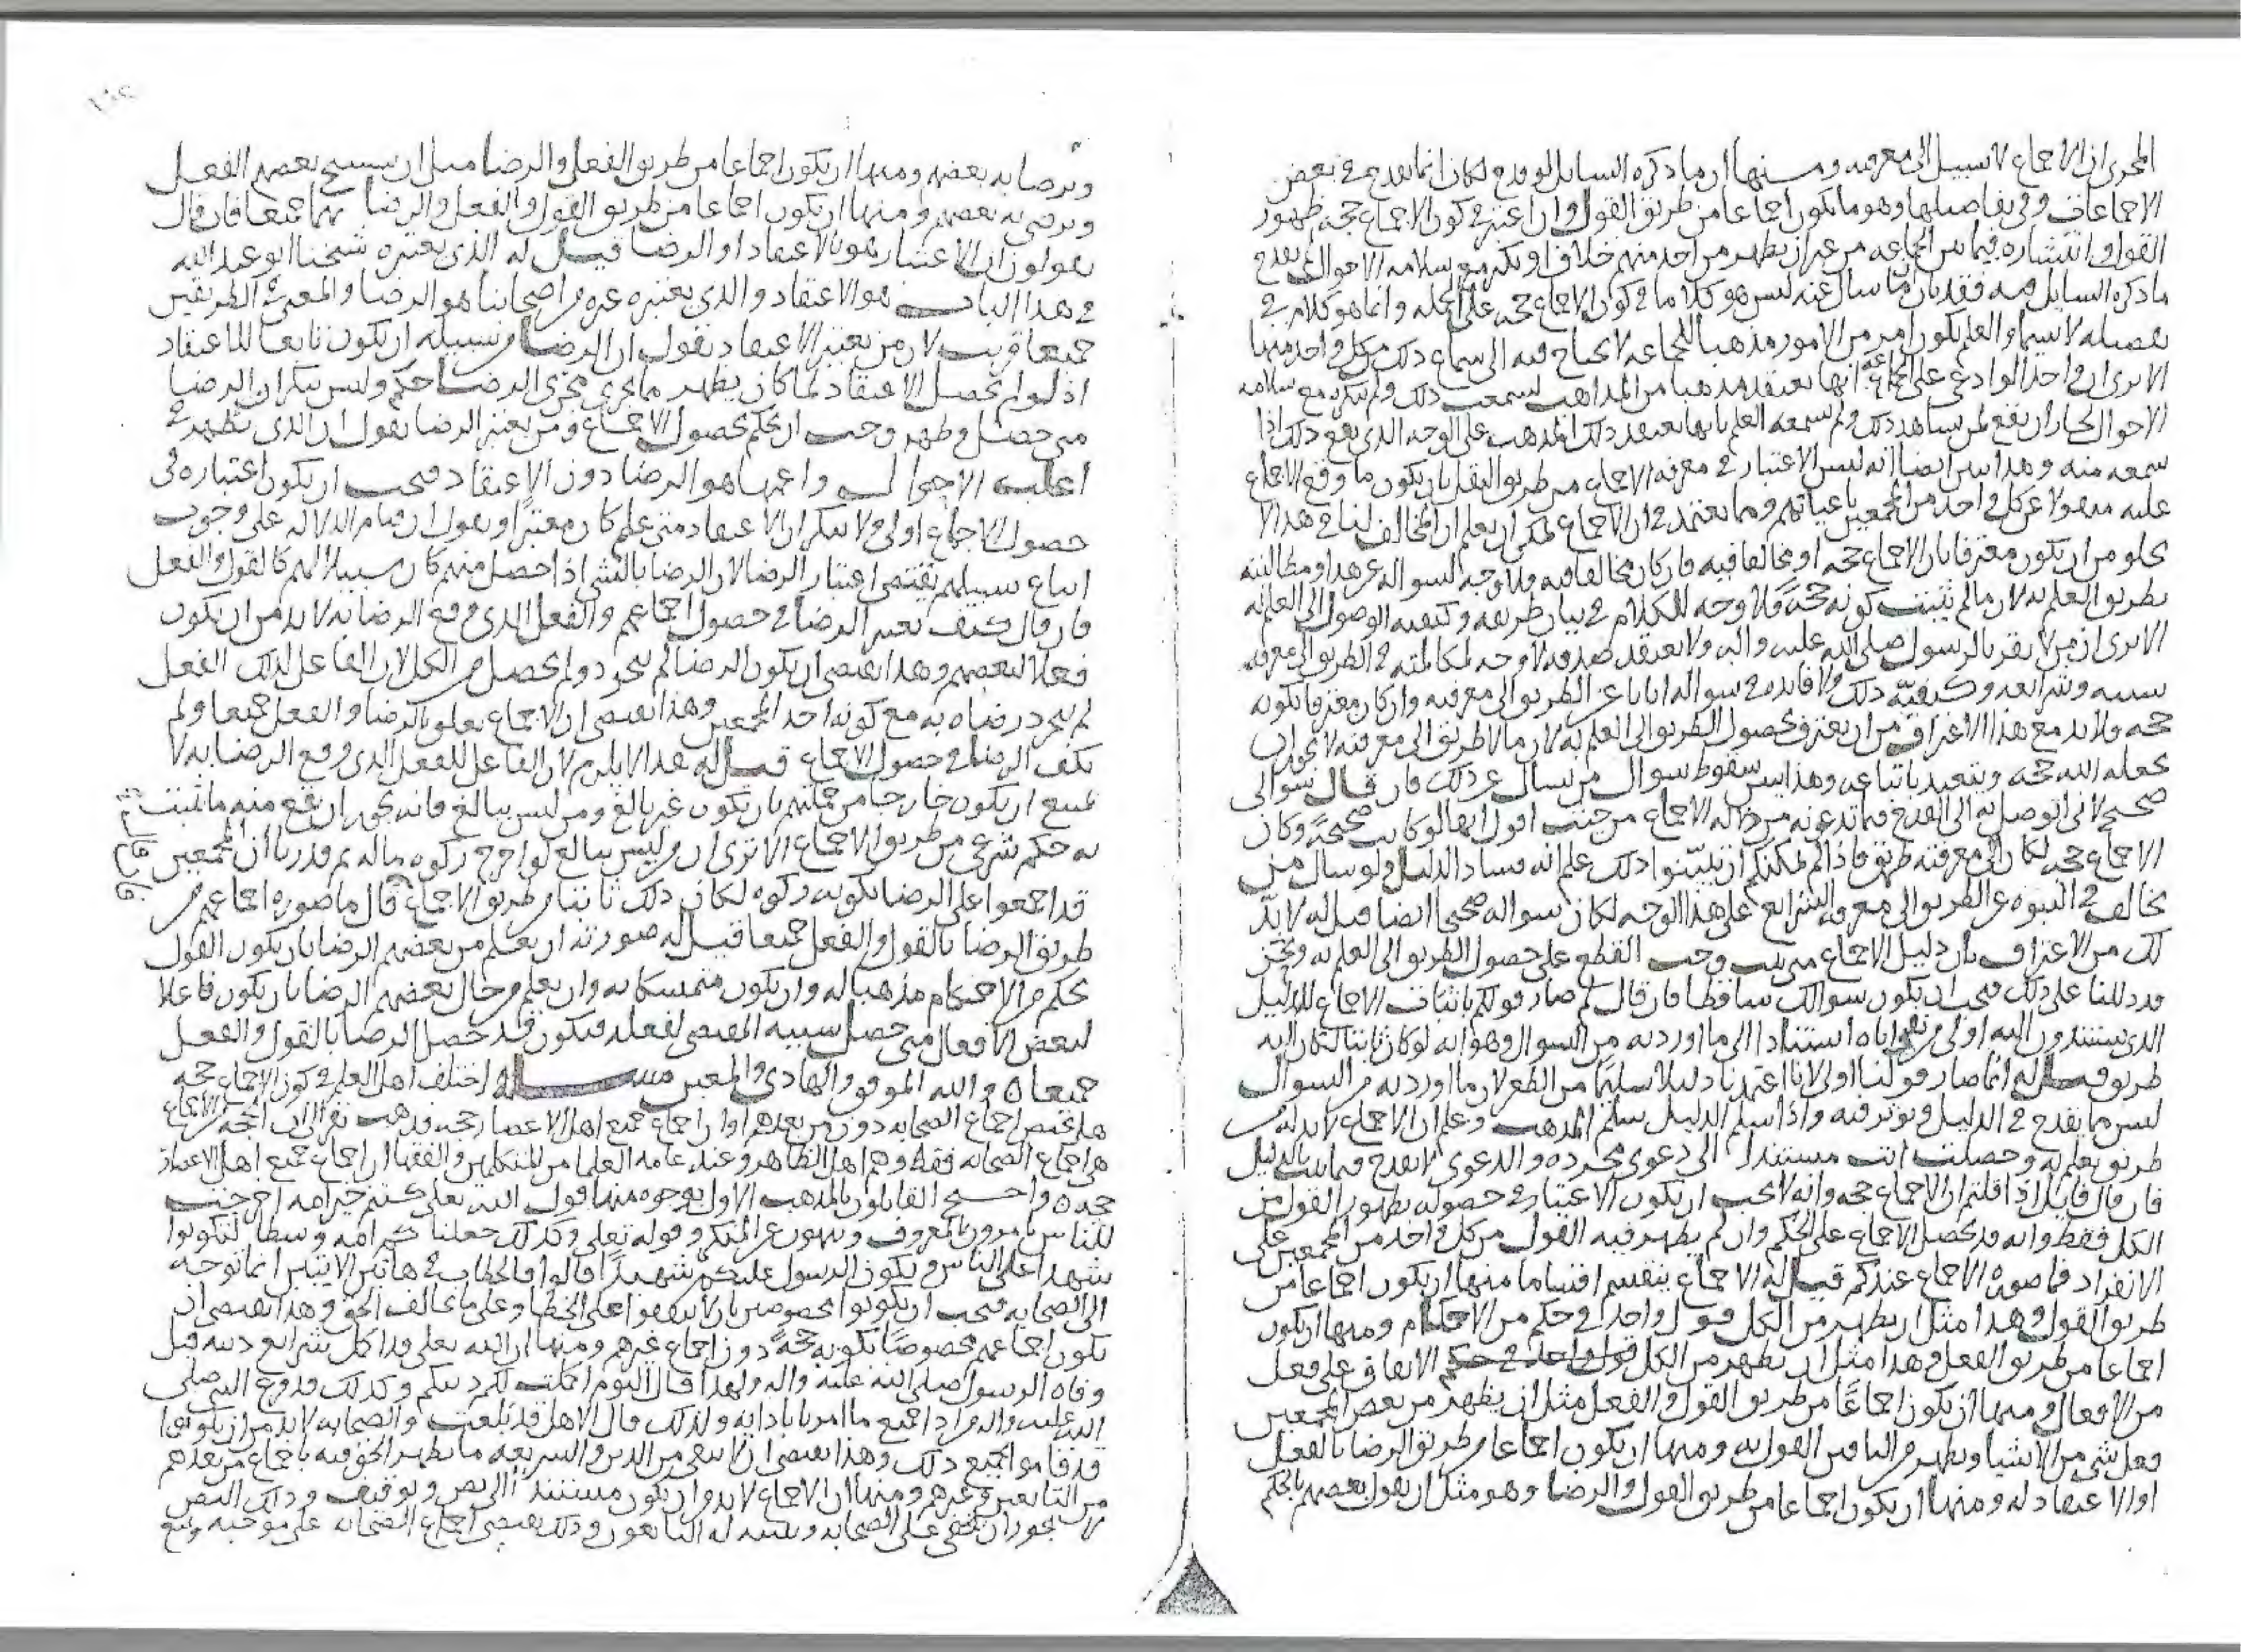 المجرى ان الاجماع لا سبيل الى معرفته ومنها ان ما ذكره السايل لو قدح لكان انما يقدح في بعض
الاجماعات وفي تفاصيلها وهو ما يكون اجماعا من طريق القول وان اعتبر في كون الاجماع حجة ظهور
القول وانتشاره فيما بين الجماعه من غير ان يظهر من احد منهم خلاف او نكير مع سلامه الاحوال لم يقدح
ما ذكره السايل فيه فقد بان ان ما سال عنه ليس هو كلاما في كون الاجماع حجه على الجمله وانما هو كلام في
تفصيله لا سيما والعلم بكون امر من الامور مذهبا للجماعه لا يحتاج فيه الى سماع ذلك من كل واحد منها
الا ترى ان واحدا لو ادعى على الجماعة انها تعتقد مذهبا من المذاهب فسمعت ذلك ولم تنكره مع سلامه
الاحوال لجاز ان يقع لمن شاهد ذلك ولم يسمعه العلم بانها تعتقد ذلك المذهب على الوجه الذي يقع ذلك اذا
سمعه منه وهذا يبين ايضا انه ليس الاعتبار في معرفه الاجماع من طريق النقل بان يكون ما وقع الاجماع
عليه منقولا عن كل واحد من المجمعين باعيانهم ومما يعتمد في ان الاجماع يمكن ان يعلم ان المخالف لنا في هذا لا
يخلو من ان يكون معترفا بان الاجماع حجه او مخالفا فيه فان كان مخالفا فيه فلا وجه لسواله عن هذا ومطالبته
بطريق العلم به لان ما لم يثبت كونه حجة فلا وجه للكلام في بيان طريقه وكيفيه الوصول الى العلم به
الا ترى ان من لا يقر بالرسول صلى الله عليه واله ولا يعتقد صدقه لا وجه لمكالمته في الطريق الى معرفه
سننه وشرايعه وكيفيّة ذلك ولا فايده في سواله ايانا عن الطريق الى معرفته وان كان معترفا بكونه
حجه ولا بد مع هذا الاعتراف من ان يعترف بحصول الطريق الى العلم به لان ما لا طريق الى معرفته لا يجوز ان
يجعله الله حجه ويتعبد باتباعه وهذا يبين سقوط سوال من يسال عن ذلك فان قال سوالى
صحيح لاني اتوصل به الى القدح فيما تدعونه من دلاله الاجماع من حيث اقول انها لو كانت صحيحة وكان
الاجماع حجه لكان الى معرفته طريق فاذا لم يمكنكم ان تبيّنوا ذلك علم انه فساد الدليل ولو سال من
يخالف في النبوه عن الطريق الى معرفه الشرايع على هذا الوجه لكان سواله صحيحا ايضا قيل له لا بدّ
لك من الاعتراف بان دليل الاجماع متى ثبت وجب القطع على حصول الطريق الى العلم به ونحن
قد دللنا على ذلك فيجب ان يكون سوالك ساقطا فان قال لم صار قولكم باثبات الاجماع للدليل
الذي تستندون اليه اولى من نفى اياه استنادا الى ما اوردته من السوال وهو انه لو كان ثابتا لكان اليه
طريق قيل له انما صار قولنا اولى لانا اعتمدنا دليلا سليما من الطعن لان ما اوردته من السوال
ليس مما يقدح في الدليل ويوثر فيه واذا سلم الدليل سلم المذهب وعلم ان الاجماع لا بد له من
طريق يعلم به وحصلت انت مستندا الى دعوى مجرده والدعوى لا تقدح فيما ثبت بالدليل
فان قال قايل اذا قلتم ان الاجماع حجه وانه لا يجب ان يكون الاعتبار في حصوله بظهور القول من
الكل فقط وانه قد يحصل الاجماع على الحكم وان لم يظهر فيه القول من كل واحد من المجمعين على
الانفراد فما صورة الاجماع عندكم قيل له الاجماع ينقسم اقساما منها ان يكون اجماعا من
طريق القول وهذا مثل ان يظهر من الكل قول واحد في حكم من الاحكام ومنها ان يكون
اجماعا من طريق الفعل وهذا مثل ان يظهر من الكل قول واحد في حكم الاتفاق على فعل
من الافعال ومنها ان يكون اجماعًا من طريق القول والفعل مثل ان يظهر من بعض المجمعين
فعل شي من الاشيا ويظهر من الباقين القول به ومنها ان يكون اجماعا من طريق الرضا بالفعل
او الاعتقاد له ومنها ان يكون اجماعا من طريق القول والرضا وهو مثل ان يقول بعضهم بالحكم
ويرضا به بعضهم ومنها ان يكون اجماعا من طريق الفعل والرضا مثل ان يستبيح بعضهم الفعل
ويرضى به بعضهم ومنها ان يكون اجماعا من طريق القول والفعل والرضا بهما جميعا فان قال
تقولون ان الاعتبار هو بالاعتقاد او الرضا قيل له الذي يعتبره شيخنا ابو عبد الله
في هذا الباب هو الاعتقاد والذي يعتبره غيره من اصحابنا هو الرضا والمعنى في الطريقين
جميعا قريب لان من يعتبر الاعتقاد يقول ان الرضا من سبيله ان يكون تابعا للاعتقاد
اذ لو لم يحصل الاعتقاد لما كان يظهر ما يجري مجرى الرضا حكم وليس ينكر ان الرضا
متى حصل وظهر وجب ان يحكم بحصول الاجماع ومن يعتبر الرضا يقول ان الذي يظهر في
اغلب الاحوال واعمها هو الرضا دون الاعتقاد فيجب ان يكون اعتباره في
حصول الاجماع اولى ولا ينكر ان الاعتقاد متى علم كان معتبرا ويقول ان قيام الدلاله على وجوب
اتباع سبيلهم يقتضي اعتبار الرضا لان الرضا بالشي اذا حصل منهم كان سبيلا لهم كالقول والفعل
فان قال كيف يعتبر الرضا في حصول اجماعهم والفعل الذي وقع الرضا به لا بد من ان يكون
فعلا لبعضهم وهذا يقتضي ان يكون الرضا لم يتجرد ولم يحصل من الكل لان الفاعل لذلك الفعل
لم يتجرد رضاه به مع كونه احد المجمعين وهذا يقتضي ان الاجماع يعلق بالرضا والفعل جميعا ولم
يكف الرضا في حصول الاجماع قيل له هذا لا يلزم لان الفاعل للفعل الذي وقع الرضا به لا
يمتنع ان يكون خارجا من جملتهم بان يكون غير بالغ ومن ليس ببالغ فانه يجوز ان يقع منه ما يثبت
به حكم شرعي من طريق الاجماع الا ترى ان من ليس ببالغ لو اخرج زكوه ماله ثم قدرنا ان المجمعين
قد اجمعوا على الرضا بكونه زكوه لكان ذلك ثابتا من طريق الاجماع قال ما صوره اجماعهم من
فان قال
طريق الرضا بالقول والفعل جميعا قيل له صورته ان يعلم من بعضهم الرضا بان يكون القول
بحكم من الاحكام مذهبا له وان يكون متمسكا به وان يعلم من حال بعضهم الرضا بان يكون فاعلا
لبعض الافعال متى حصل سببه المقتضي لفعله فيكون قد حصل الرضا بالقول والفعل
جميعا ه والله الموفق والهادي والمعين مسـله اختلف اهل العلم في كون الاجماع حجه
هل يختص اجماع الصحابه دون من بعدهم او ان اجماع جميع اهل الاعصار حجه فذهب نفر الى ان الحجه من الاجماع
هو اجماع الصحابه فقط وهم اهل الظاهر وعند عامه العلما من المتكلمين والفقها ان اجماع جميع اهل الاعصار
حجه ه واحتج القايلون بالمذهب الاول بوجوه منها قول الله تعلى كنتم خير امه اخرجت
للناس تامرون بالمعروف وتنهون عن المنكر وقوله تعلى وكذلك جعلناكم امه وسطا لتكونوا
شهدا على الناس ويكون الرسول عليكم شهيدًا قالوا فالخطاب في هاتين الايتين انما توجه
الى الصحابه فيجب ان يكونوا مخصوصين بان لا يتفقوا على الخطا وعلى ما يخالف الحق وهذا يقتضي ان
يكون اجماعهم مخصوصًا بكونه حجةً دون اجماع غيرهم ومنها ان الله تعلى قد اكمل شرايع دينه قبل
وفاه الرسول صلى الله عليه واله ولهذا قال اليوم اكملت لكم دينكم وكذلك قد وقع النبي صلى
الله عليه واله من ادا جميع ما امر بادايه ولذلك قال الا هل قد بلغت والصحابه لا بد من ان يكونوا
قد قاموا بجميع ذلك وهذا يقتضي ان لا يبقى من الدين والشريعه ما يظهر الحق فيه باجماع من بعدهم
من التابعين وغيرهم ومنها ان الاجماع لا بد وان يكون مستندا الى نص وتوقيف وذلك النص
يجوز ان يخفى على الصحابه ويتنبه له التابعون وذلك يقتضي اجماع الصحابه على موجبه ويمنع